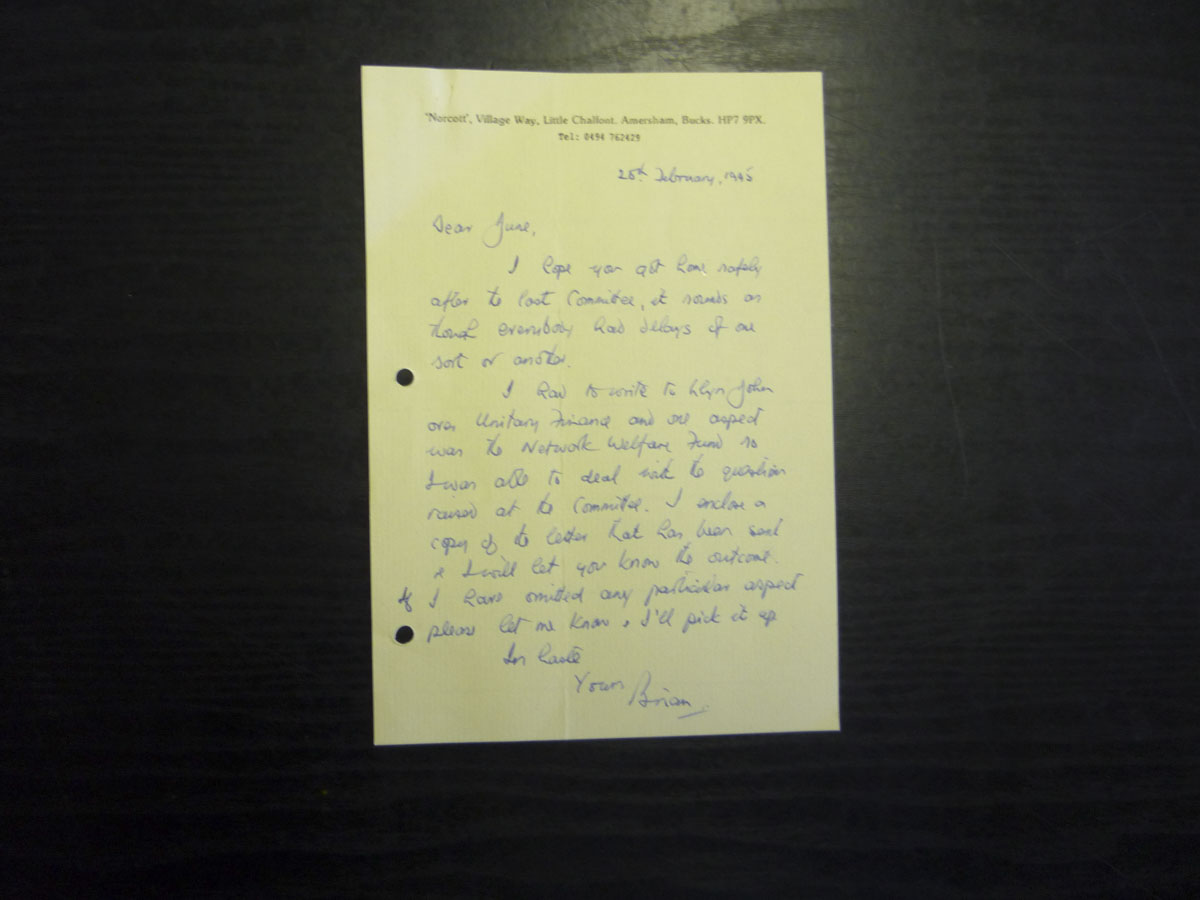 'Norcott', Village Way, Little Chalfont, Amersham, Bucks. HP7 9PX.
Tel: 0494 762429
February, 1995
Dear June,
I hope you got home safely
after the last Committee, it sounds as
though everybody had delays of one
sort or another.
I had to write to Llyn John
over Unitary Finance and one aspect
was the Network Welfare Fund so
I was able to deal with the question
raised at the Committee. I enclose a
copy of the letter that has been sent
& I will let you know the outcome.
If I have omitted any particular aspect
please let me know & I'll pick it up
In haste
Yours Brian